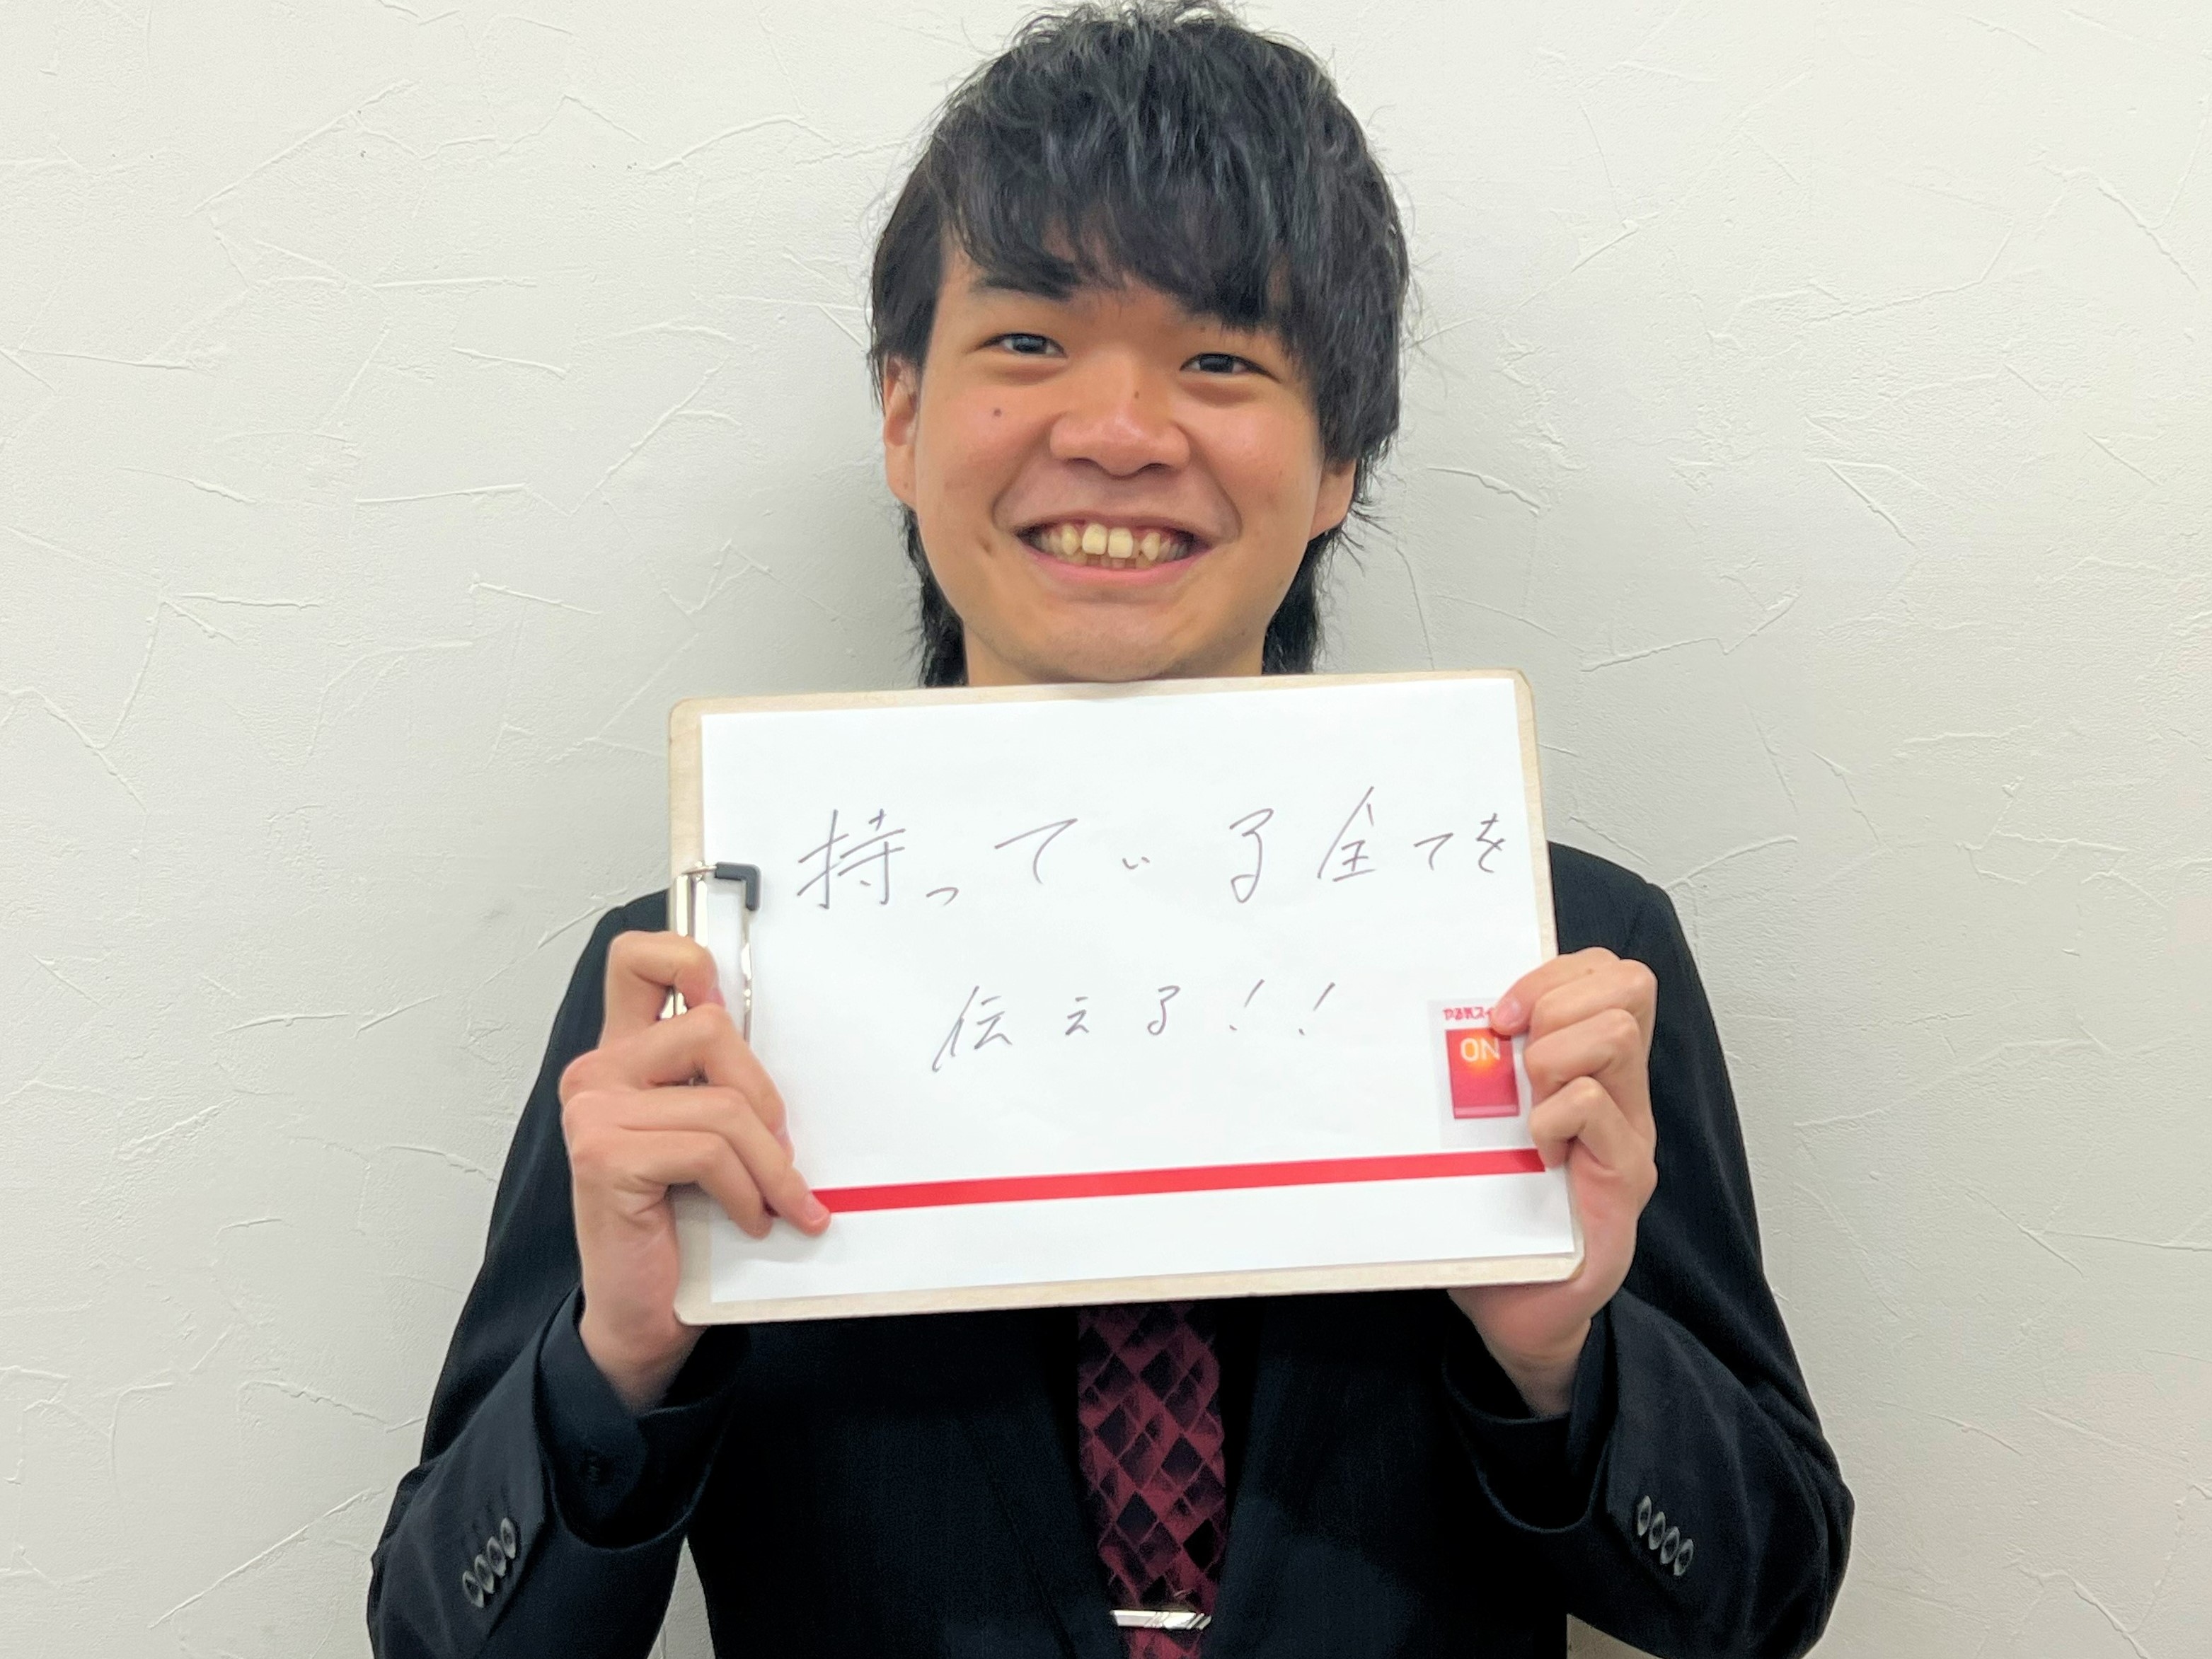 持っている全てを
伝える!!
やる気スイ
ON